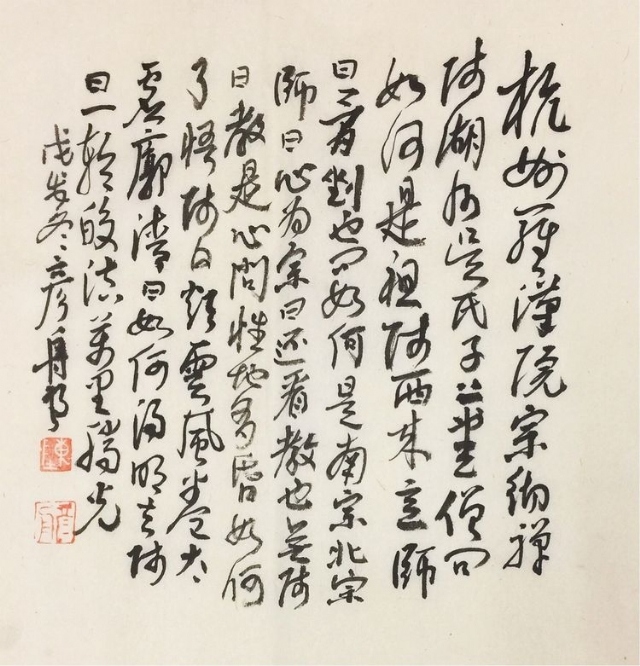 杭州羅漢院宗徹禪
師湖州吳氏子上堂僧問
如何是祖師西來意師
曰骨剉也問如何是南宗北宗
師曰心為宗曰還看教也無師
曰教是心問性地多昏如何
了悟師曰煩雲風卷太
虛廓清曰如何得明去師
曰一輪皎潔萬里騰光
戊戌冬彥舟